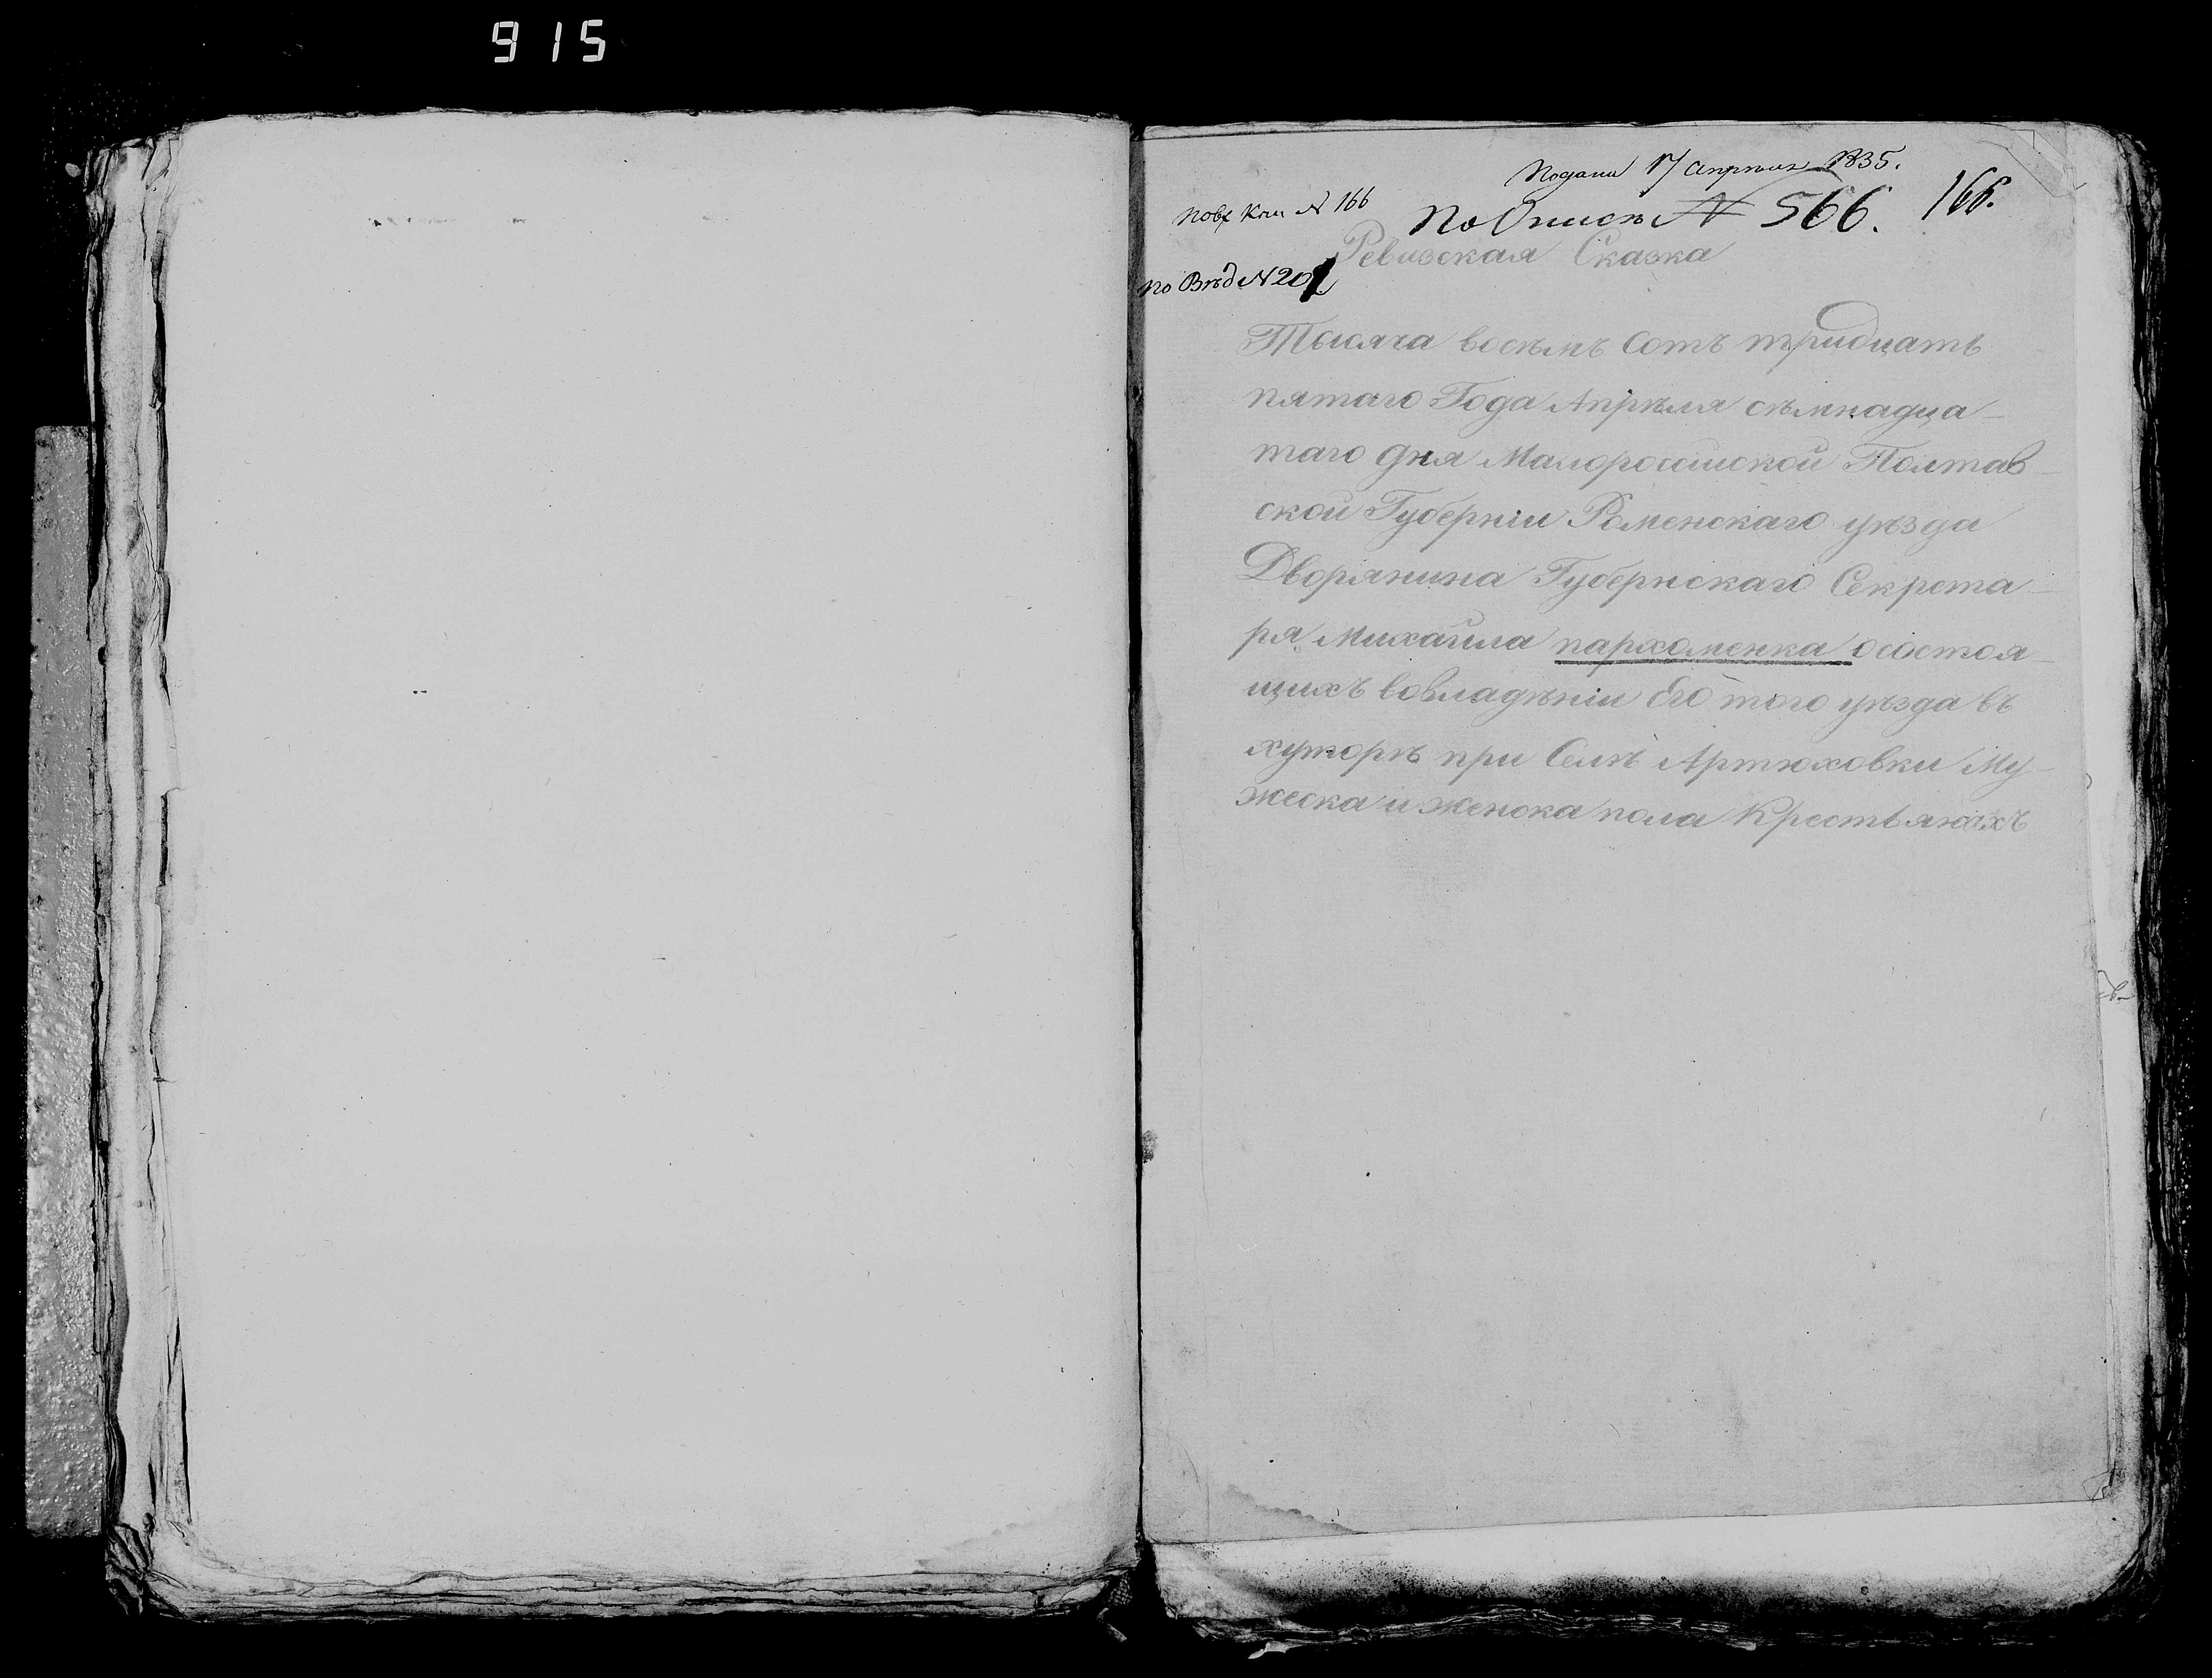 915
Подана 17 апреля 1835.
По вх Кни № 166
По Описи № 566.
166.
Ревизская Сказка
по Вѣд № 201
Тысяча восѣмъ Сотъ тридцать
пятаго Года Апрѣля сѣмнадца-
таго дня Малоросійской Полтав-
ской Губерніи Роменскаго уѣзда
Дворянина Губернскаго Секрета-
ря Михайла пархоменка осостоя-
щихъ вовладѣніи Его того уѣзда въ
хуторѣ при Селѣ Артюховки Му-
жеска и женска пола Крестьянахъ